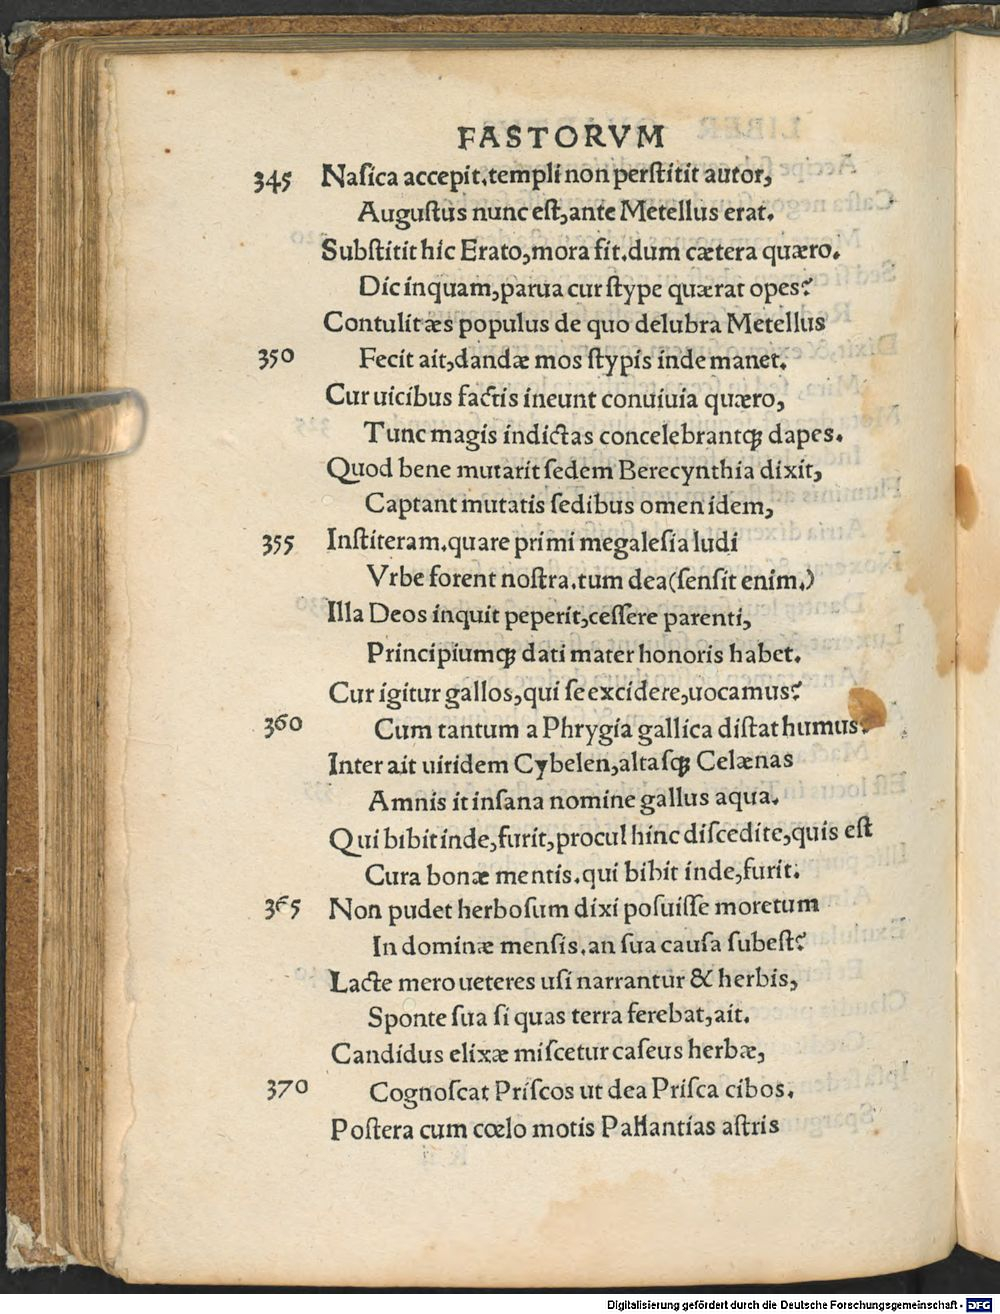 FASTORVM
345 Naſica accepit.templi non perſtitit autor,
Auguſtus nunc eſt,ante Metellus erat.
Subſtitit hic Erato,mora fit.dum cætera quæro.
Dic inquam,parua cur ſtype quærat opes?
Contulit æs populus de quo delubra Metellus
350 Fecit ait,dandæ mos ſtypis inde manet.
Cur uicibus factis ineunt conuiuia quæro,
Tunc magis indictas concelebrantqꝫ dapes.
Quod bene mutarit ſedem Berecynthia dixit,
Captant mutatis ſedibus omen idem,
355 Inſtiteram.quare primi megaleſia ludi
Vrbe forent noſtra.tum dea(ſenſit enim.)
Illa Deos inquit peperit,ceſſere parenti,
Principiumqꝫ dati mater honoris habet.
Cur igitur gallos,qui ſe excidere,uocamus?
360 Cum tantum a Phrygia gallica diſtat humus.
Inter ait uiridem Cybelen,altaſqꝫ Celænas
Amnis it inſana nomine gallus aqua.
Qui bibit inde,furit,procul hinc diſcedite,quis eſt
Cura bonæ mentis.qui bibit inde,furit.
365 Non pudet herboſum dixi poſuiſſe moretum
In dominæ menſis.an ſua cauſa ſubeſt?
Lacte mero ueteres uſi narrantur & herbis,
Sponte ſua ſi quas terra ferebat,ait.
Candidus elixæ miſcetur caſeus herbæ,
370 Cognoſcat Priſcos ut dea Priſca cibos.
Poſtera cum cœlo motis Pallantias aſtris
Digitalisierung gefördert durch die Deutsche Forschungsgemeinschaft - DFG